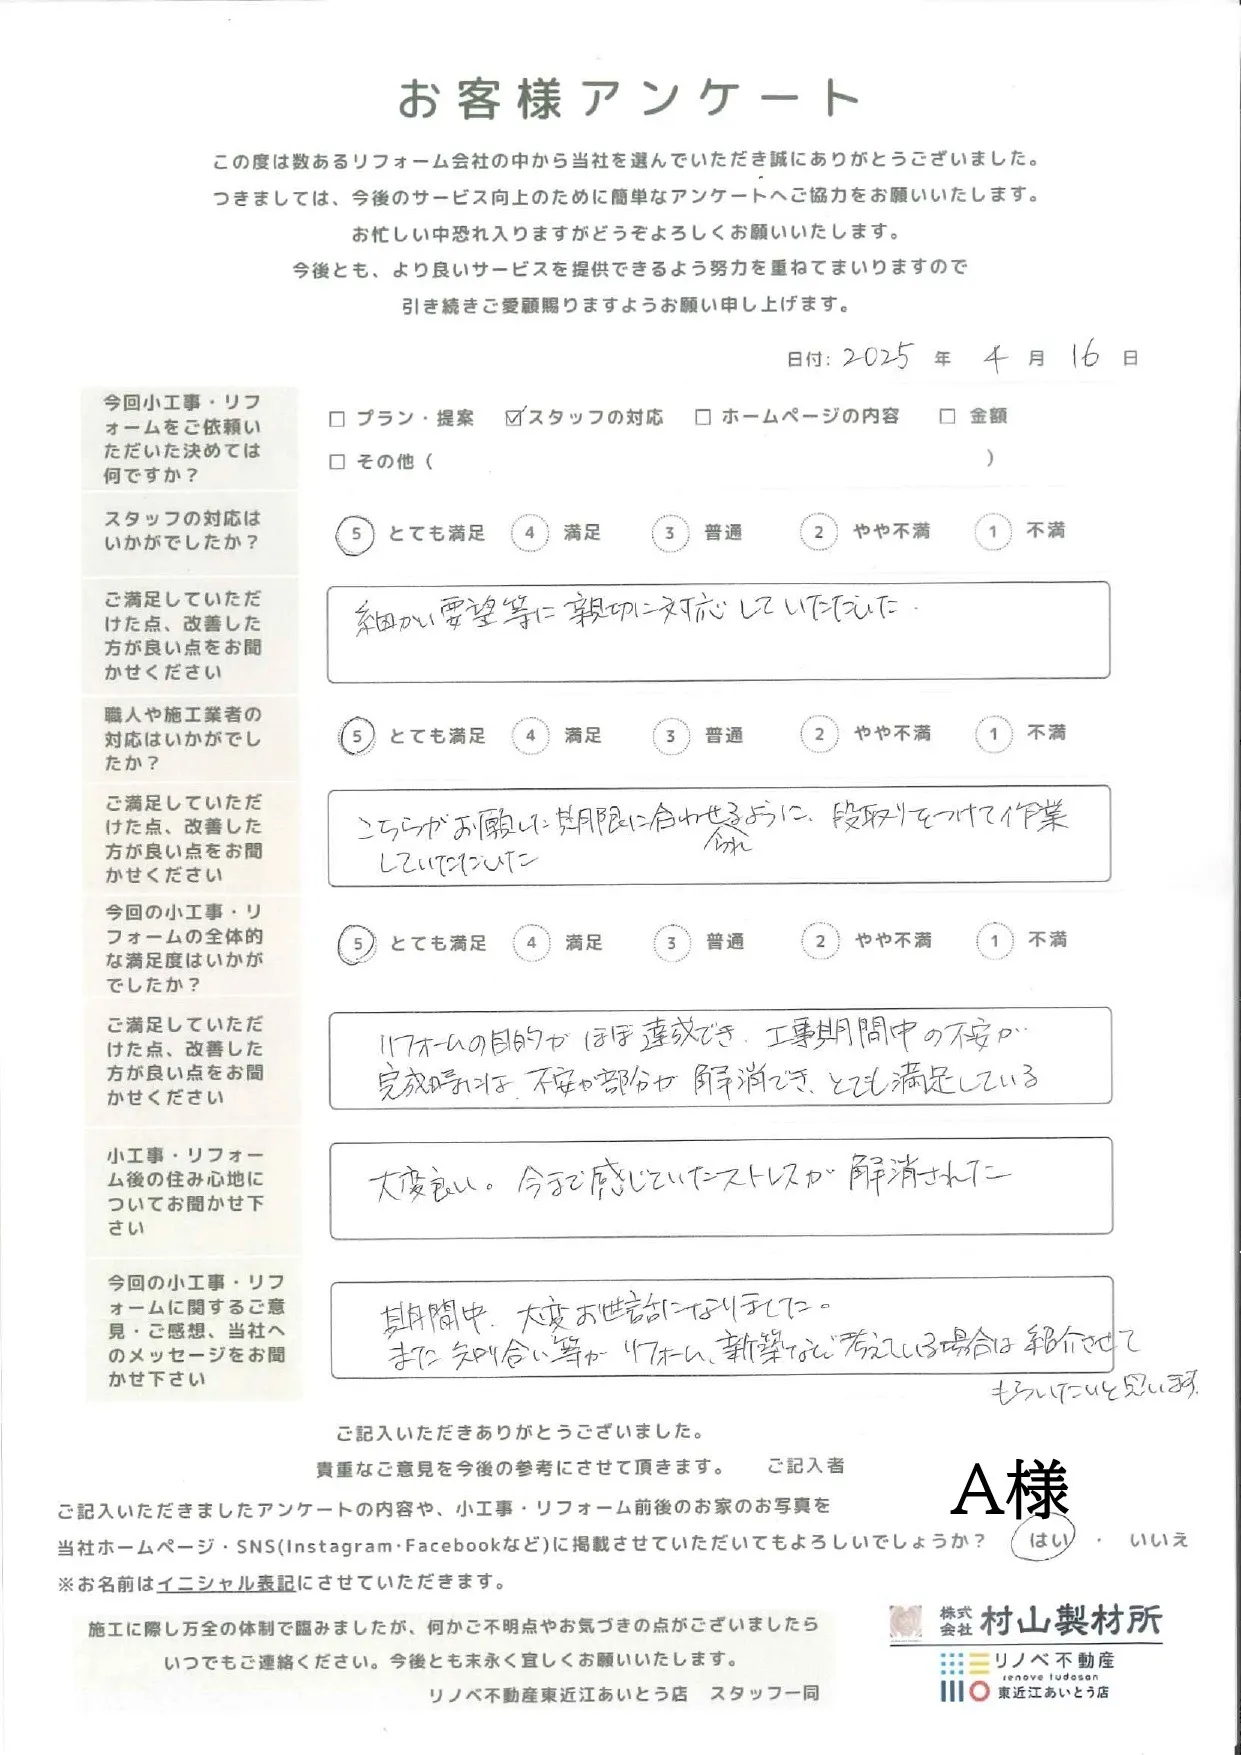 お客様アンケート
この度は数あるリフォーム会社の中から当社を選んでいただき誠にありがとうございました。
つきましては、今後のサービス向上のために簡単なアンケートへご協力をお願いいたします。
お忙しい中恐れ入りますがどうぞよろしくお願いいたします。
今後とも、より良いサービスを提供できるよう努力を重ねてまいりますので
引き続きご愛顧賜りますようお願い申し上げます。
日付: 2025 年 4 月 16 日
今回小工事・リフ
ォームをご依頼い
ただいた決めては
何ですか？
□ プラン・提案 ☑スタッフの対応 □ ホームページの内容 □ 金額
□ その他（ ）
スタッフの対応は
いかがでしたか？
5 とても満足 4 満足 3 普通 2 やや不満 1 不満
ご満足していただ
けた点、改善した
方が良い点をお聞
かせください
細かい要望等に親切に対応していただいた.
職人や施工業者の
対応はいかがでし
たか？
5 とても満足 4 満足 3 普通 2 やや不満 1 不満
ご満足していただ
けた点、改善した
方が良い点をお聞
かせください
こちらがお願いした期限に合わせるように、段取りをつけて作業
られ
していただいた
今回の小工事・リ
フォームの全体的
な満足度はいかが
でしたか？
5 とても満足 4 満足 3 普通 2 やや不満 1 不満
ご満足していただ
けた点、改善した
方が良い点をお聞
かせください
リフォームの目的がほぼ達成でき、工事期間中の不安が
完成時には、不安な部分が解消でき、とても満足している
小工事・リフォー
ム後の住み心地に
ついてお聞かせ下
さい
大変良い。今まで感じていたストレスが解消された
今回の小工事・リフ
ォームに関するご意
見・ご感想、当社へ
のメッセージをお聞
かせ下さい
期間中、大変お世話になりました。
また知り合い等がリフォーム、新築など考えている場合は紹介させて
もらいたいと思います。
ご記入いただきありがとうございました。
貴重なご意見を今後の参考にさせて頂きます。 ご記入者
A様
ご記入いただきましたアンケートの内容や、小工事・リフォーム前後のお家のお写真を
当社ホームページ・SNS(Instagram・Facebookなど)に掲載させていただいてもよろしいでしょうか？ はい ・ いいえ
※お名前はイニシャル表記にさせていただきます。
施工に際し万全の体制で臨みましたが、何かご不明点やお気づきの点がございましたら
いつでもご連絡ください。今後とも末永く宜しくお願いいたします。
リノベ不動産東近江あいとう店 スタッフ一同
株式会社 村山製材所
リノベ不動産
renove fudosan
東近江あいとう店